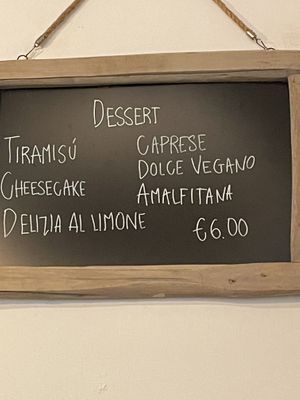 DESSERT
TIRAMISÚ
CHEESECAKE
DELIZIA AL LIMONE
CAPRESE
DOLCE VEGANO
AMALFITANA
€6.00